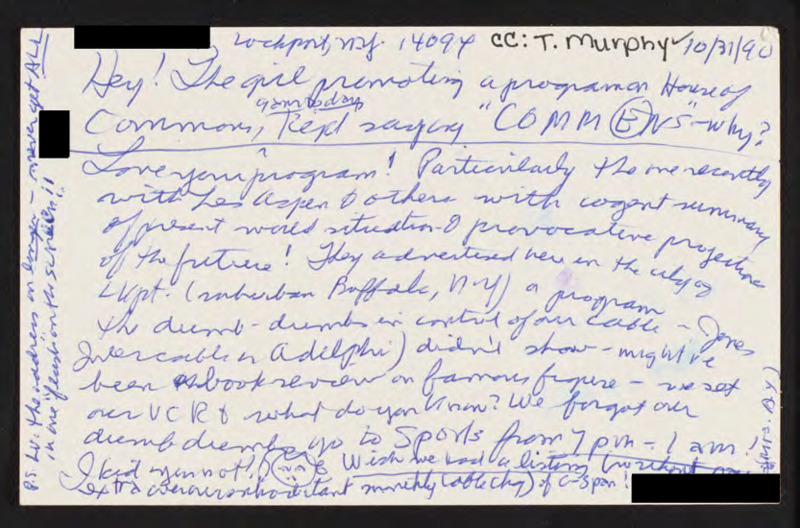 Lockport, N.Y. 14094 CC: T. Murphy 10/31/90
Hey! The girl promoting a program on House of
Commons, kept saying "COMMENS" - why?
Love your program! Particularly the one recently
with Les Aspen & others with cogent summary
of present world situation & provocative projections
of the future! They advertised here in the city of
Lkpt. (suburban Buffalo, N-Y) a program
the dumb-dumbs in control of our cable - Jones
Intercable or Adelphi) didn't show - might've
been book review on famous figure - we set
our VCR & what do you know? We forgot our
dumb dumbs go to Sports from 7 pm - 1 am!
I kid you not! Wish we had a listing (without
extra monthly cable chg) of C-Span!
P.S. LV: the address on longer - never get ALL
in one "flash on the screen"!!
(Mrs. D.Y.)